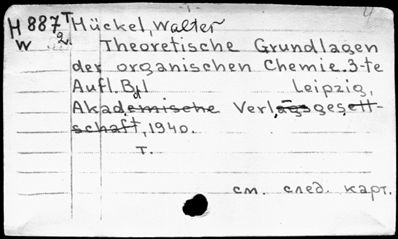 H 887 T Hückel, Walter
W 2. Theoretische Grundlagen
der organischen Chemie. 3-te
Aufl. Bd 1 Leipzig,
Akademische Verlagsgesell-
schaft, 1940.
T.
см. след. карт.